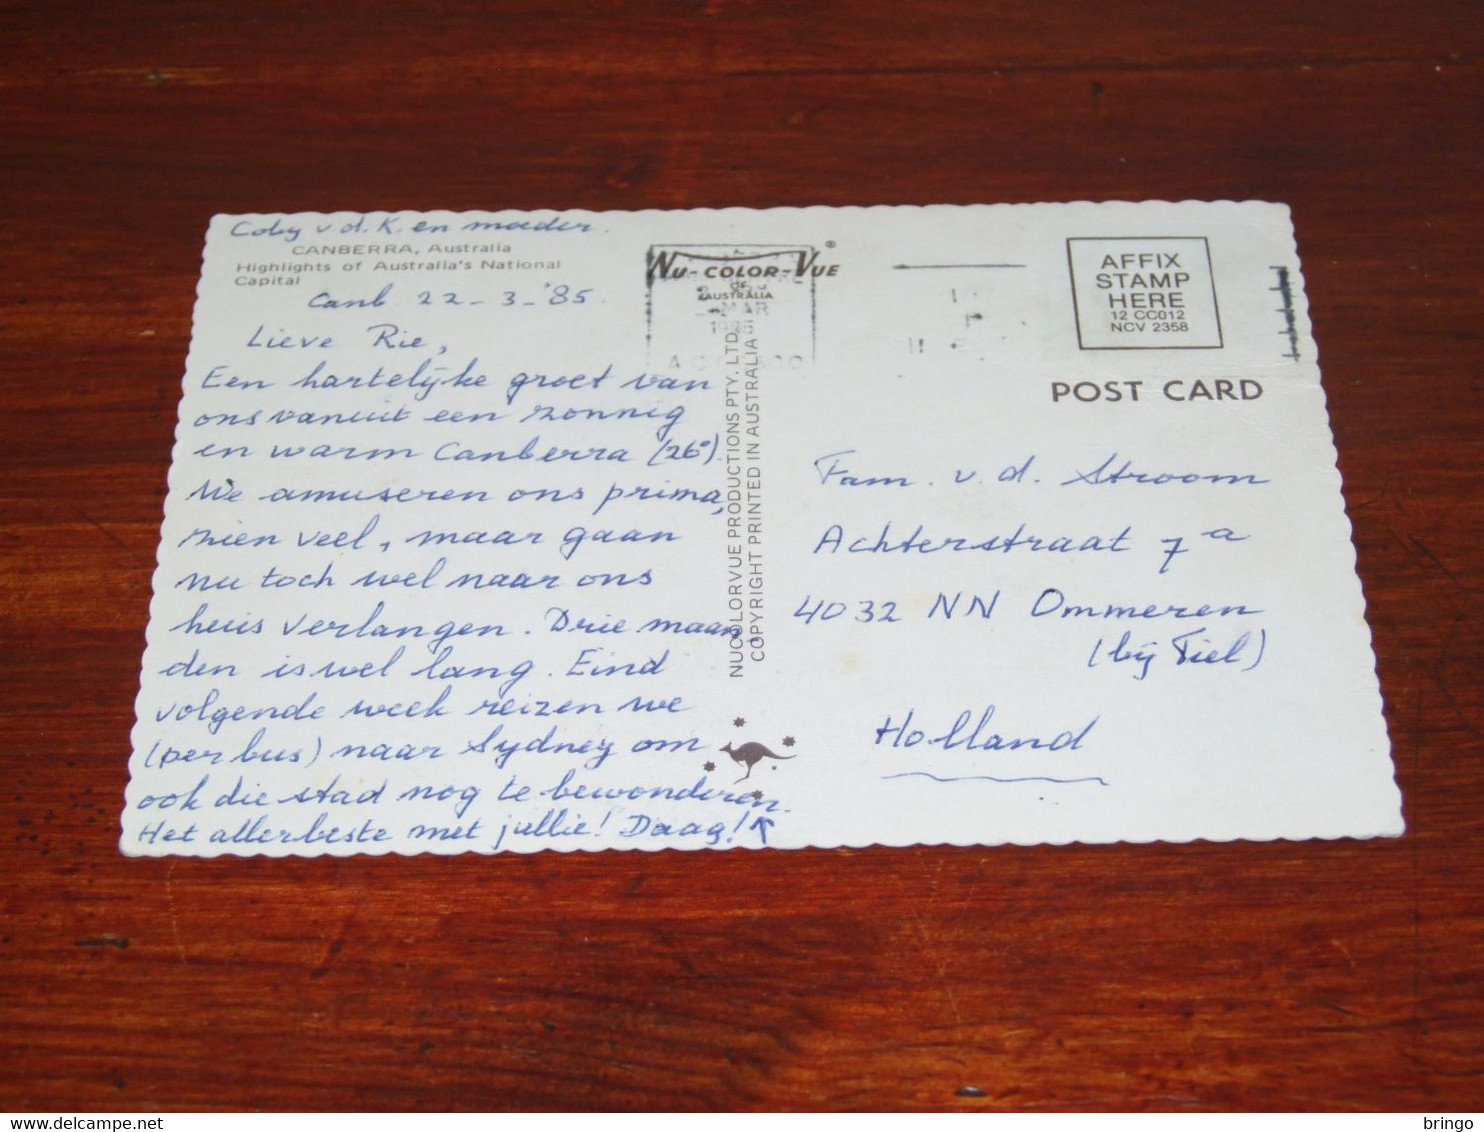 Coby v.d. K. en moeder.
CANBERRA, Australia
Highlights of Australia's National
Capital
Canb 22-3-'85.
Lieve Rie,
Een hartelijke groet van
ons vanuit een zonnig
en warm Canberra (26°).
We amuseren ons prima,
zien veel, maar gaan
nu toch wel naar ons
huis verlangen. Drie maan
den is wel lang. Eind
volgende week reizen we
(per bus) naar Sydney om
ook die stad nog te bewonderen.
Het allerbeste met jullie! Daag!
NU-COLOR-VUE ®
OF
AUSTRALIA
MAR
1985
NUCOLORVUE PRODUCTIONS PTY. LTD.
COPYRIGHT PRINTED IN AUSTRALIA
AFFIX
STAMP
HERE
12 CC012
NCV 2358
POST CARD
Fam. v.d. Stroom
Achterstraat 7a
4032 NN Ommeren
(bij Tiel)
Holland
delcampe.net
bringo